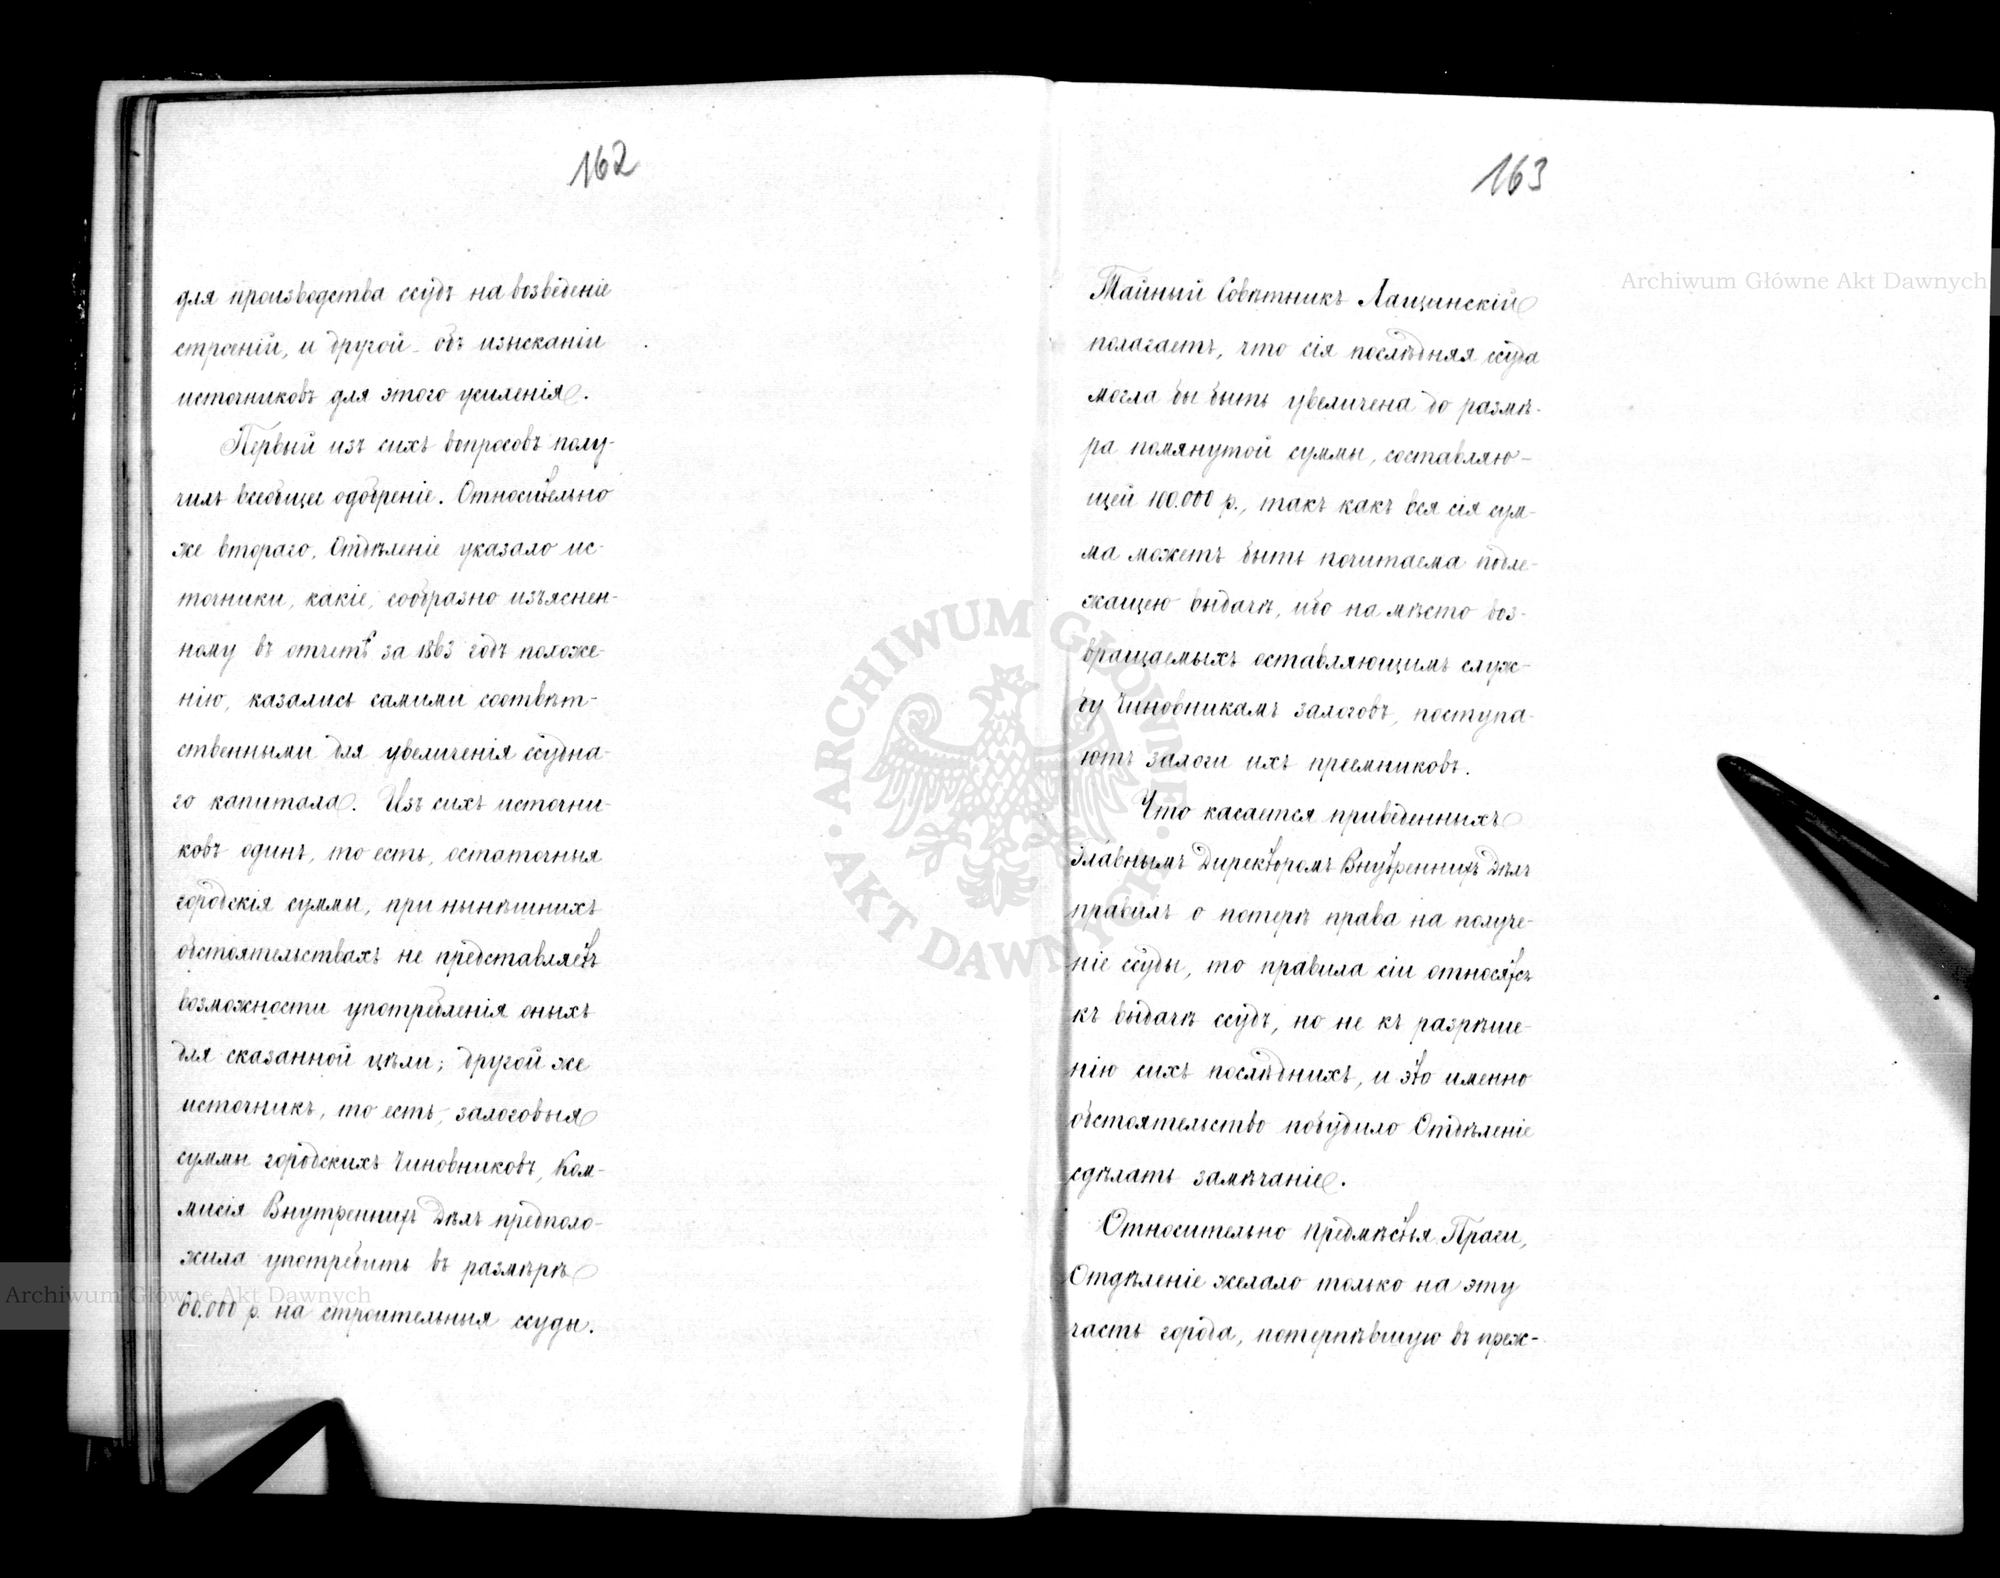 162
для производства ссудъ на возведеніе
строеній, и другой - объ изысканіи
источниковъ для этого усиленія.
Первый изъ сихъ вопросовъ полу-
чилъ всеобщее одобреніе. Относительно
же втораго, Отдѣленіе указало ис-
точники, какіе, сообразно изъяснен-
ному въ отчетѣ за 1863 годъ положе-
нію, казались самими соотвѣт-
ственными для увеличенія ссудна-
го капитала. Изъ сихъ источни-
ковъ одинъ, то есть, остаточныя
городскія суммы, при нынѣшнихъ
обстоятельствахъ не представляетъ
возможности употребленія оныхъ
для сказанной цѣли; другой же
источникъ, то есть, залоговыя
суммы городскихъ чиновниковъ, Ком-
мисія Внутреннихъ Дѣлъ предполо-
жила употребить въ размѣрѣ
60.000 р. на строительныя ссуды.
163
Тайный Совѣтникъ Лащинскій
полагаетъ, что сія послѣдняя ссуда
могла бы быть увеличена до размѣ-
ра помянутой суммы, составляю-
щей 100.000 р., такъ какъ вся сія сум-
ма можетъ быть почитаема подле-
жащею выдачѣ, ибо на мѣсто воз-
вращаемыхъ оставляющимъ служ-
бу чиновникамъ залоговъ, поступа-
ютъ залоги ихъ преемниковъ.
Что касается приведенныхъ
Главнымъ Директоромъ Внутреннихъ Дѣлъ
правилъ о потерѣ права на получе-
ніе ссуды, то правила сіи относятся
къ выдачѣ ссудъ, но не къ разрѣше-
нію сихъ послѣднихъ, и это именно
обстоятельство побудило Отдѣленіе
сдѣлать замѣчаніе.
Относительно предмѣстья Праги,
Отдѣленіе желало только на эту
часть города, потерпѣвшую въ преж-
Archiwum Główne Akt Dawnych
Archiwum Główne Akt Dawnych
ARCHIWUM GŁÓWNE
AKT DAWNYCH